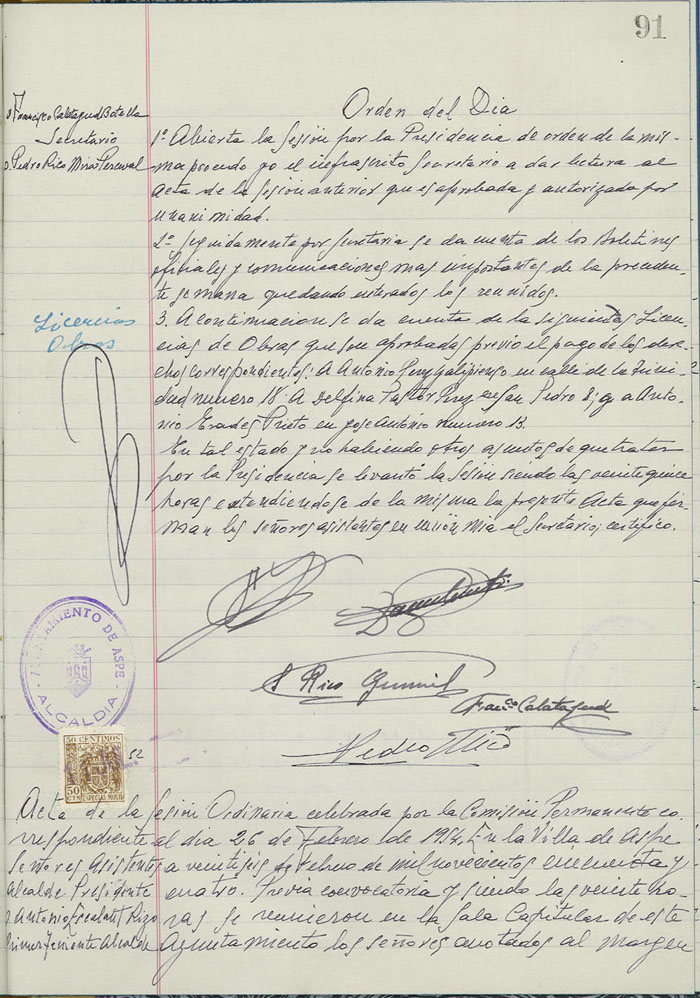 91
Dn Francisco Calatayud Botella
Secretario
D. Pedro Rico Mira Perceval
Orden del Dia
1º Abierta la Sesion por la Presidencia de orden de la mis-
ma procedo yo el infrascrito Secretario a dar lectura al
Acta de la sesion anterior que es aprobada y autorizada por
unanimidad.
2º Seguidamente por Secretaria se da cuenta de los Boletines
oficiales y comunicaciones mas importantes de la preceden-
te semana quedando enterados los reunidos.
Licencias
Obras
3. A continuacion se da cuenta de la siguientes Licen-
cias de Obras que son aprobadas previo el pago de los dere-
chos correspondientes: A Antonio Perez Galipienso en calle de la
numero 18 A Delfina Pastor Perez en San Pedro 8; y a Anto-
nio Erades Prieto en Jose Antonio numero 13.
En tal estado y no habiendo otros asuntos de que tratar
por la Presidencia se levantó la sesion siendo las veinte quince
horas extendiendose de la misma la presente Acta que fir-
man los señores asistentes en union mia el Secretario, certifico.
Rico
Franco Calatayud
Pedro Rico
AYUNTAMIENTO DE ASPE
ALCALDIA
50 CENTIMOS
50
CTS ESPECIAL MOVIL
52
Acta de la Sesion Ordinaria celebrada por la Comision Permanente co-
rrespondiente al dia 26 de Febrero de 1954. En la Villa de Aspe
Señores Asistentes
a veintiseis de Febrero de mil novecientos cincuenta y
Alcalde Presidente
cuatro. Previa convocatoria y siendo las veinte ho-
D. Antonio Rizo
ras se reunieron en la Sala Capitular de este
Primer Teniente Alcalde
Ayuntamiento los señores anotados al margen